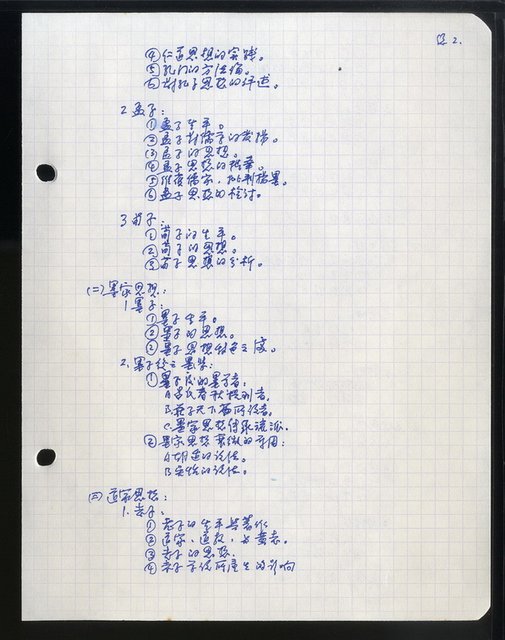 2.
④仁道思想的实践。
⑤孔门的方法论。
⑥对孔子思想的评述。
2.孟子:
①孟子生平。
②孟子对儒学的发揚。
③孟子的思想。
④孟子思想的精華。
⑤維護儒家,批判楊墨。
⑥孟子思想的檢討。
3.荀子:
①荀子的生平。
②荀子的思想。
③荀子思想的分析。
(二)墨家思想:
1.墨子:
①墨子生平。
②墨子的思想。
③墨子思想特色之
2.墨子後之墨学:
①墨子後的墨学者,
A.吕氏春秋類列者,
B.莊子天下篇所後者,
C.墨家思想傳承流派.
②墨家思想衰微的原因:
A.胡適的说法。
B.的说法。
(三)道家思想:
1.老子:
①老子的生平與著作
②道家、道教、与黄老。
③老子的思想.
④老子学说所產生的影响